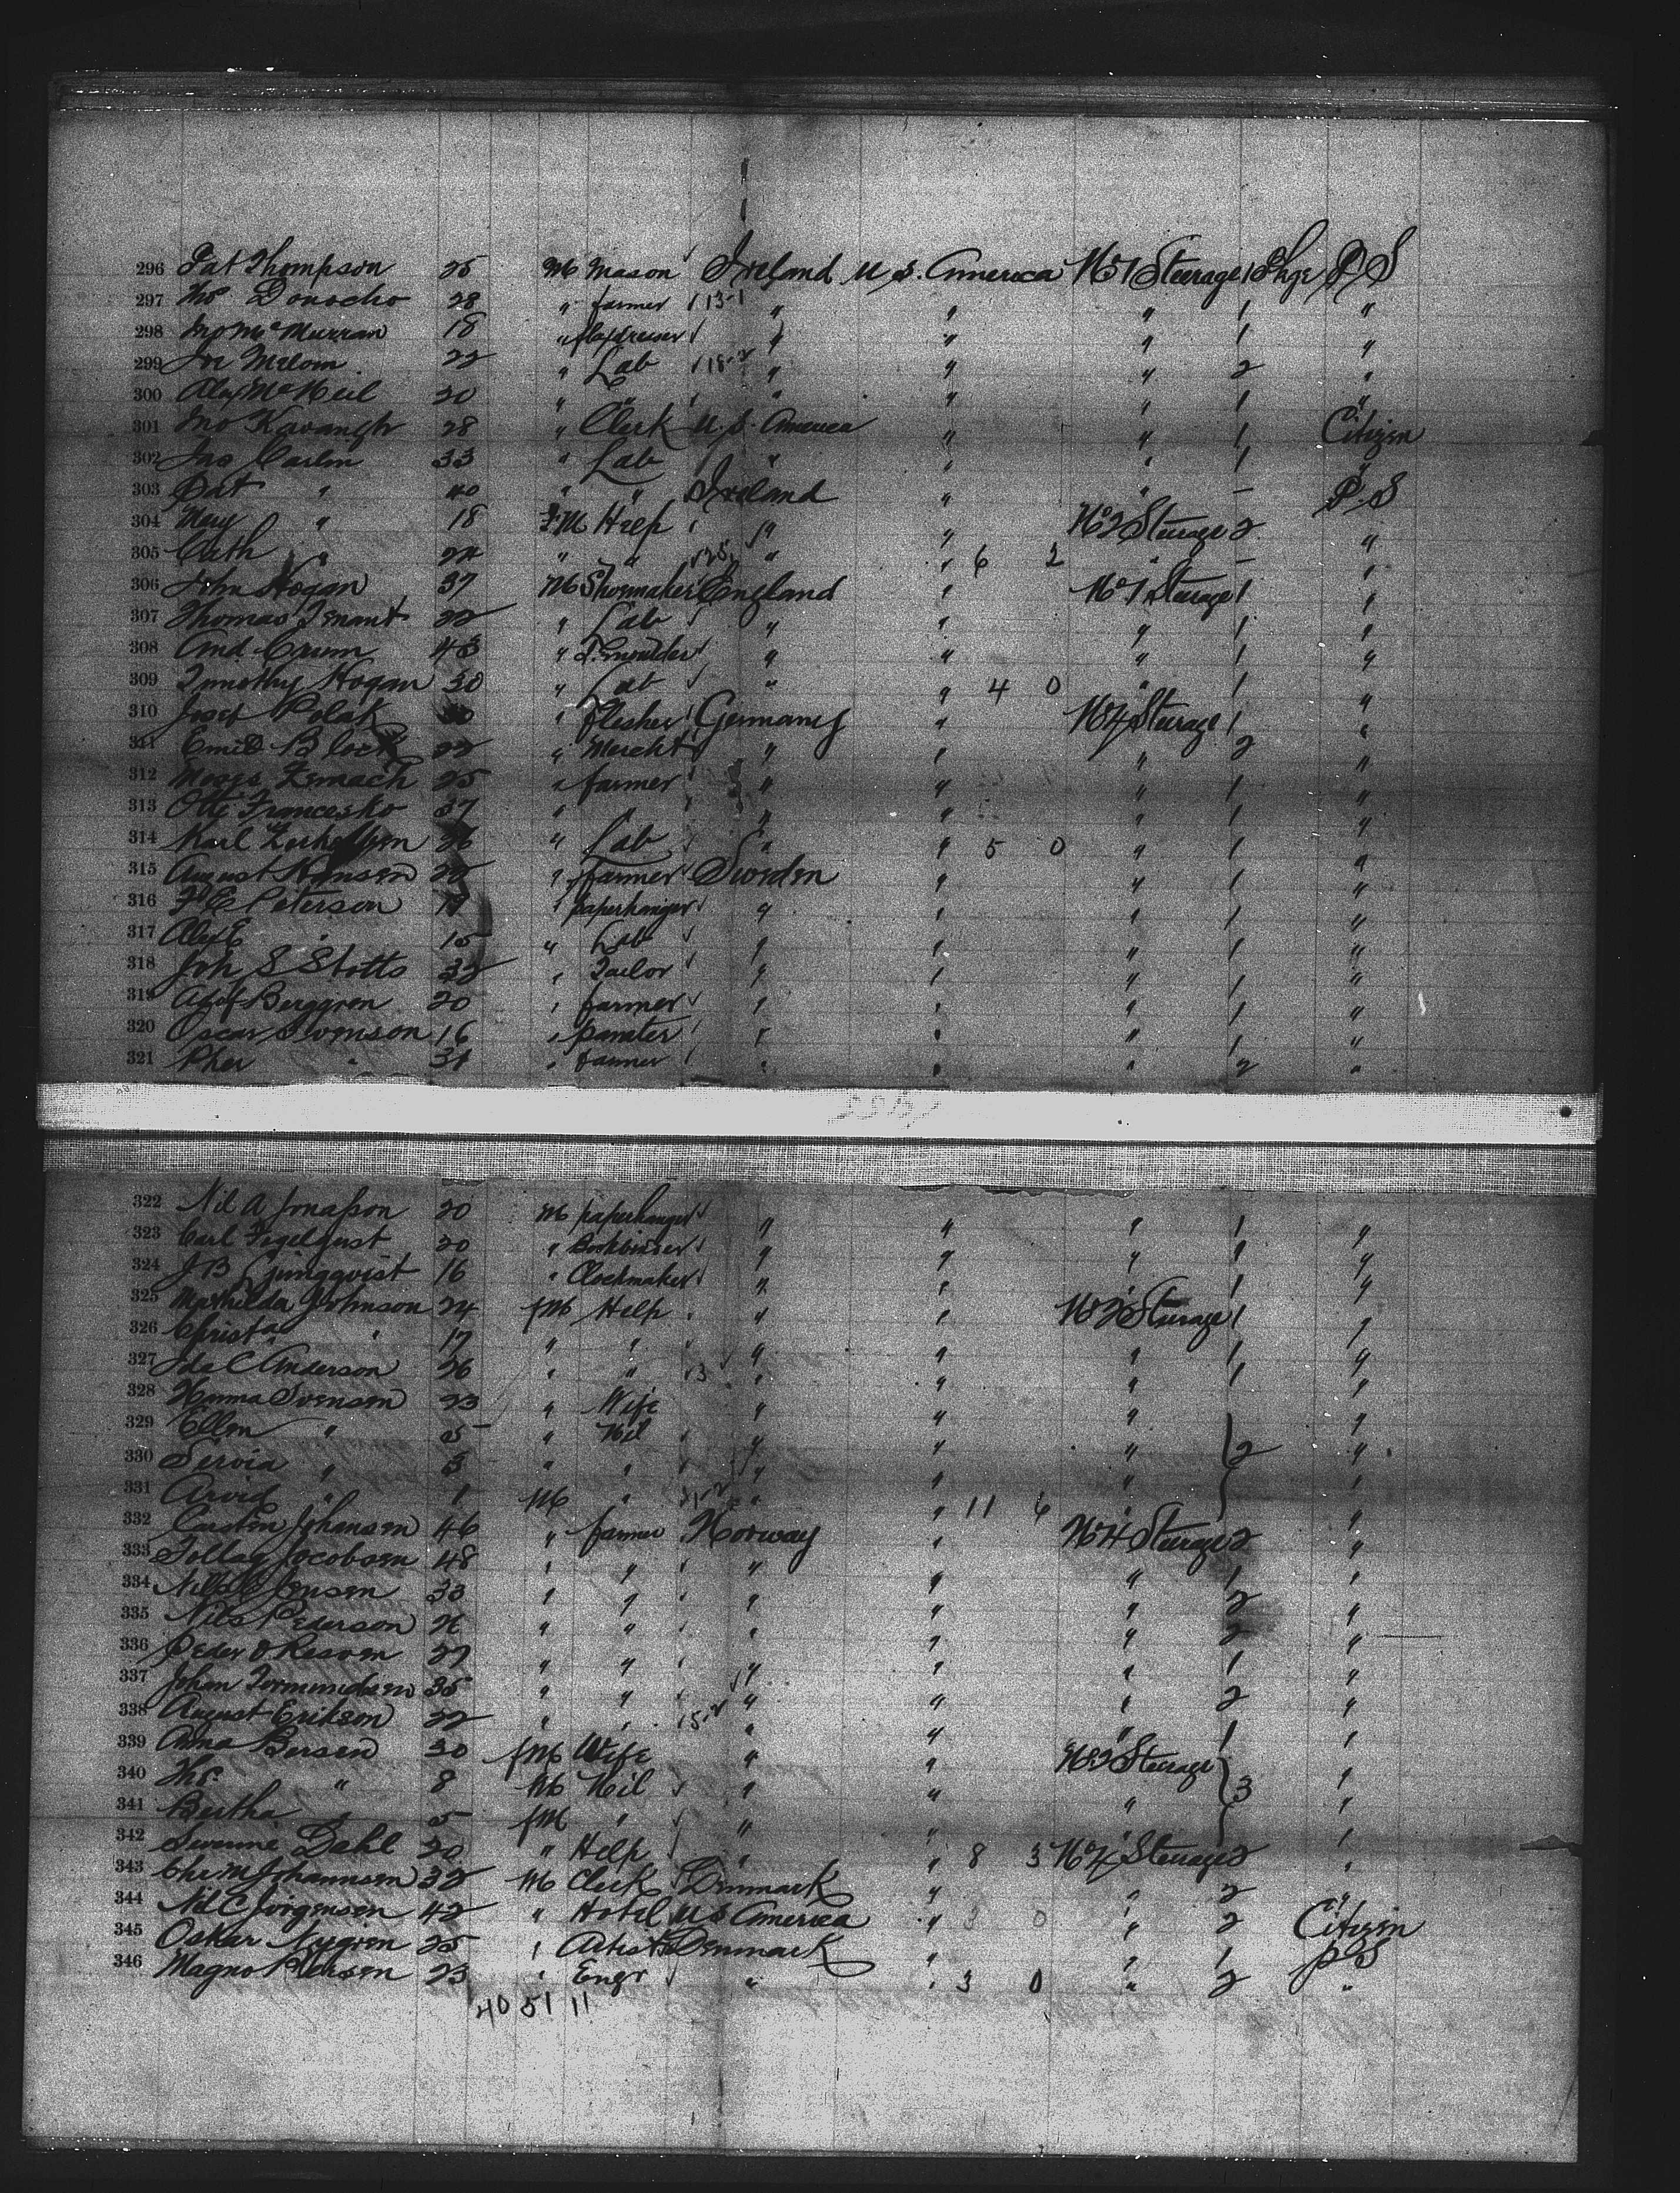 296 Pat Thompson 25 M Mason Ireland U.S. America No 1 Steerage 1 Pkge P S
297 Thos Donocho 28 " farmer 13-1 " " " 1 "
298 Jno McMurran 18 " flaxdresser " " " 1 "
299 Joe 22 " Lab " " " 2 "
300 Alex McNeil 20 " " " " " 1 "
301 Jno Kavangh 28 " Clerk U.S. America " " 1 Citizen
302 Jas Carlin 33 " Lab " " " 1 "
303 Pat " 40 " " Ireland " " – P.S
304 Mary " 18 FM Help " " No 2 Steerage 2 "
305 Cath " 24 " " " " 6 2 " – "
306 John Hogan 37 M Shoemaker England " No 1 Steerage 1 "
307 Thomas Tenant 22 " Lab " " " 1 "
308 And Crum 43 " " " " 1 "
309 Timothy Hogan 30 " Lab " " 4 0 " 1 "
310 Josef Polak " Flesher Germany " No 4 Steerage 1 "
311 Emil Block 22 " Mercht " " " 2 "
312 Moses Zemach 25 " farmer " " " 1 "
313 Otto Francesko 37 " " " " " 1 "
314 Karl 26 " Lab " " 5 0 " 1 "
315 August Hansen 22 " Farmer Sweden " " 1 "
316 F E Peterson 17 " paperhanger " " " 1 "
317 Alex E " 15 " Lab " " " 1 "
318 Joh S Stotts 32 " Tailor " " " 1 "
319 Adof Berggren 20 " farmer " " " 1 "
320 Oscar Svenson 16 " panater " " " 1 "
321 Pher " 31 " farmer " " " 2 "
322 Nil A Jonasson 20 M paperhanger " " " 1 "
323 Carl Fegelquist 20 " Bookbinder " " " 1 "
324 J B Ljungqvist 16 " Clockmaker " " " 1 "
325 Mathilda Johnson 24 fM Help " " No 2 Steerage 1 "
326 Christa " 17 " " " " " 1 "
327 Ida C Anderson 26 " " 13 " " " 1 "
328 Hanna Svensen 23 " Wife " " " "
329 Ellen " 5 " Nil " " " 2 "
330 Servia " 3 " " " " " "
331 Arvid " 1 M " " " 11 6 " "
332 Carsten Johansen 46 " farmer Norway " No 4 Steerage 2 "
333 Tollag Jacobsen 48 " " " " " 1 "
334 Nils C Jensen 33 " " " " " 2 "
335 Nils Pederson 26 " " " " " 2 "
336 Peder O Resven 27 " " " " " 1 "
337 Johan Tormundsen 35 " " " " " 2 "
338 August Erikson 22 " " " " " 1 "
339 Anna Bersen 30 fM Wife " " No 2 Steerage "
340 Ths. " 8 M Nil " " " 3 "
341 Bertha " 5 fM " " " " "
342 Dahl 20 " Help " " 8 3 No 4 Steerage 2 "
343 Chr M Johannsen 32 M Clerk Denmark " " 2 "
344 Nil C Jorgensen 42 " Hotel U S America " 3 0 " 2 Citizen
345 Oskar Nygren 25 " Artist Denmark " " 1 P S
346 Magno Persen 23 " Engr " " 3 0 " 2 "
40 51 11